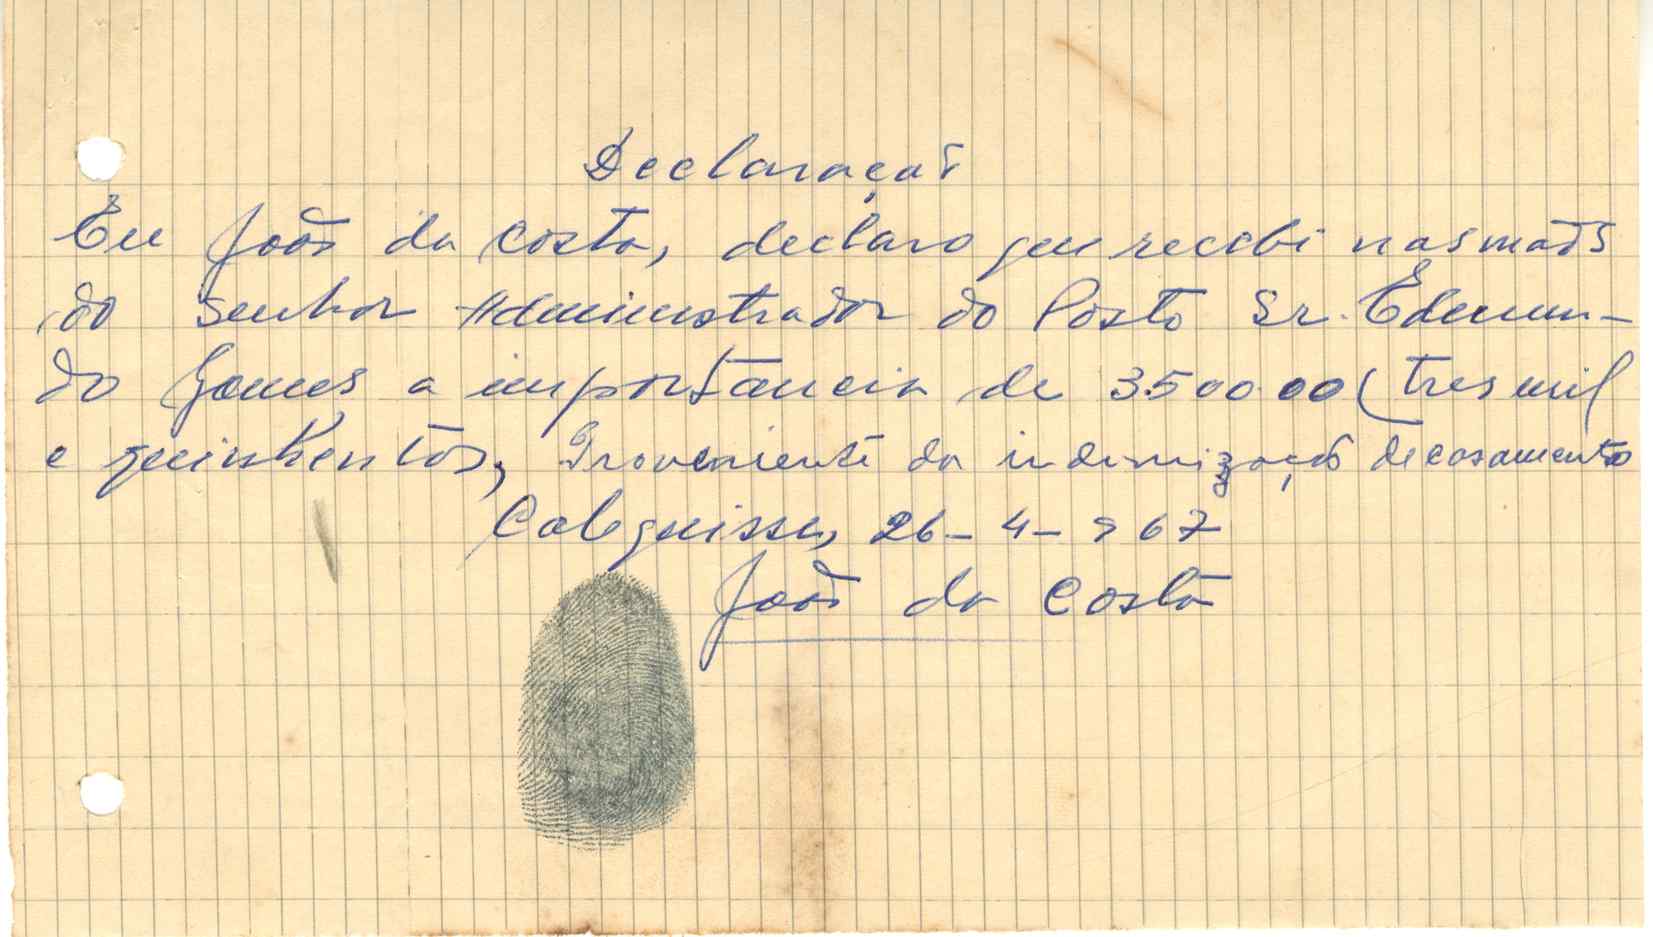 Declaração
Eu João da Costa, declaro que recebi nas mãos
do Senhor Administrador do Posto Sr. Edmun-
do Gomes a importância de 3.500.00 (tres mil
e quinhentos, Proveniente da indimização de casamento
Calequisse, 26-4-967
João da Costa